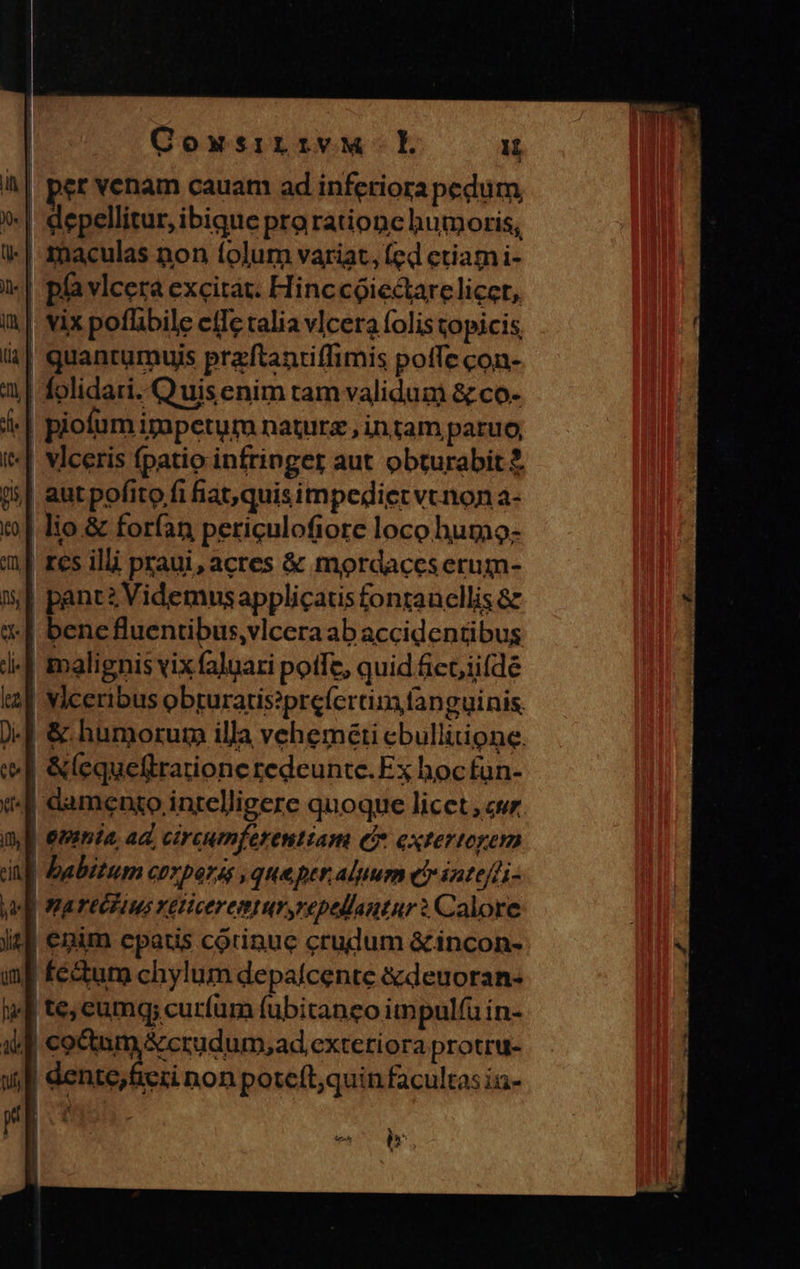 CONSILIVM I. 11
per venam cauam ad inferiora pedum,
depellitur, ibique pro ratione humoris,
maculas non ſolum variat, ſed etiam i-
pſa vlcera excitat. Hinc cõiectare licet,
vix poſſibile eſſe talia vlcera ſolis topicis
quantumuis præſtantiſſimis poſſe con-
ſolidari. Quis enim tam validum & co-
pioſum impetum naturæ, in tam paruo,
vlceris ſpatio infringet aut obturabit?
aut poſito ſi fiat, quis impediet vt non a-
lio & forſan periculoſiore loco humo-
res illi praui, acres & mordaces erum-
pant? Videmus applicatis fontanellis &
bene fluentibus, vlcera ab accidentibus
malignis vix ſaluari poſſe, quid fiet, iiſdẽ
vlceribus obturatis? preſertim, ſanguinis
& humorum illa vehemẽti ebullitione.
& ſequeſtratione redeunte. Ex hoc fun-
damento intelligere quoque licet, cur
omnia ad circumferentiam & exteriorem
habitum corporis, quæ per aluum & inteſti-
na rectius reiicerentur, repellantur? Calore
enim epatis cõtinue crudum & incon-
fectum chylum depaſcente & deuoran-
te, eumq; curſum ſubitaneo impulſu in-
coctum, & crudum, ad exteriora protru-
dente, fieri non poteſt, quin facultas in-